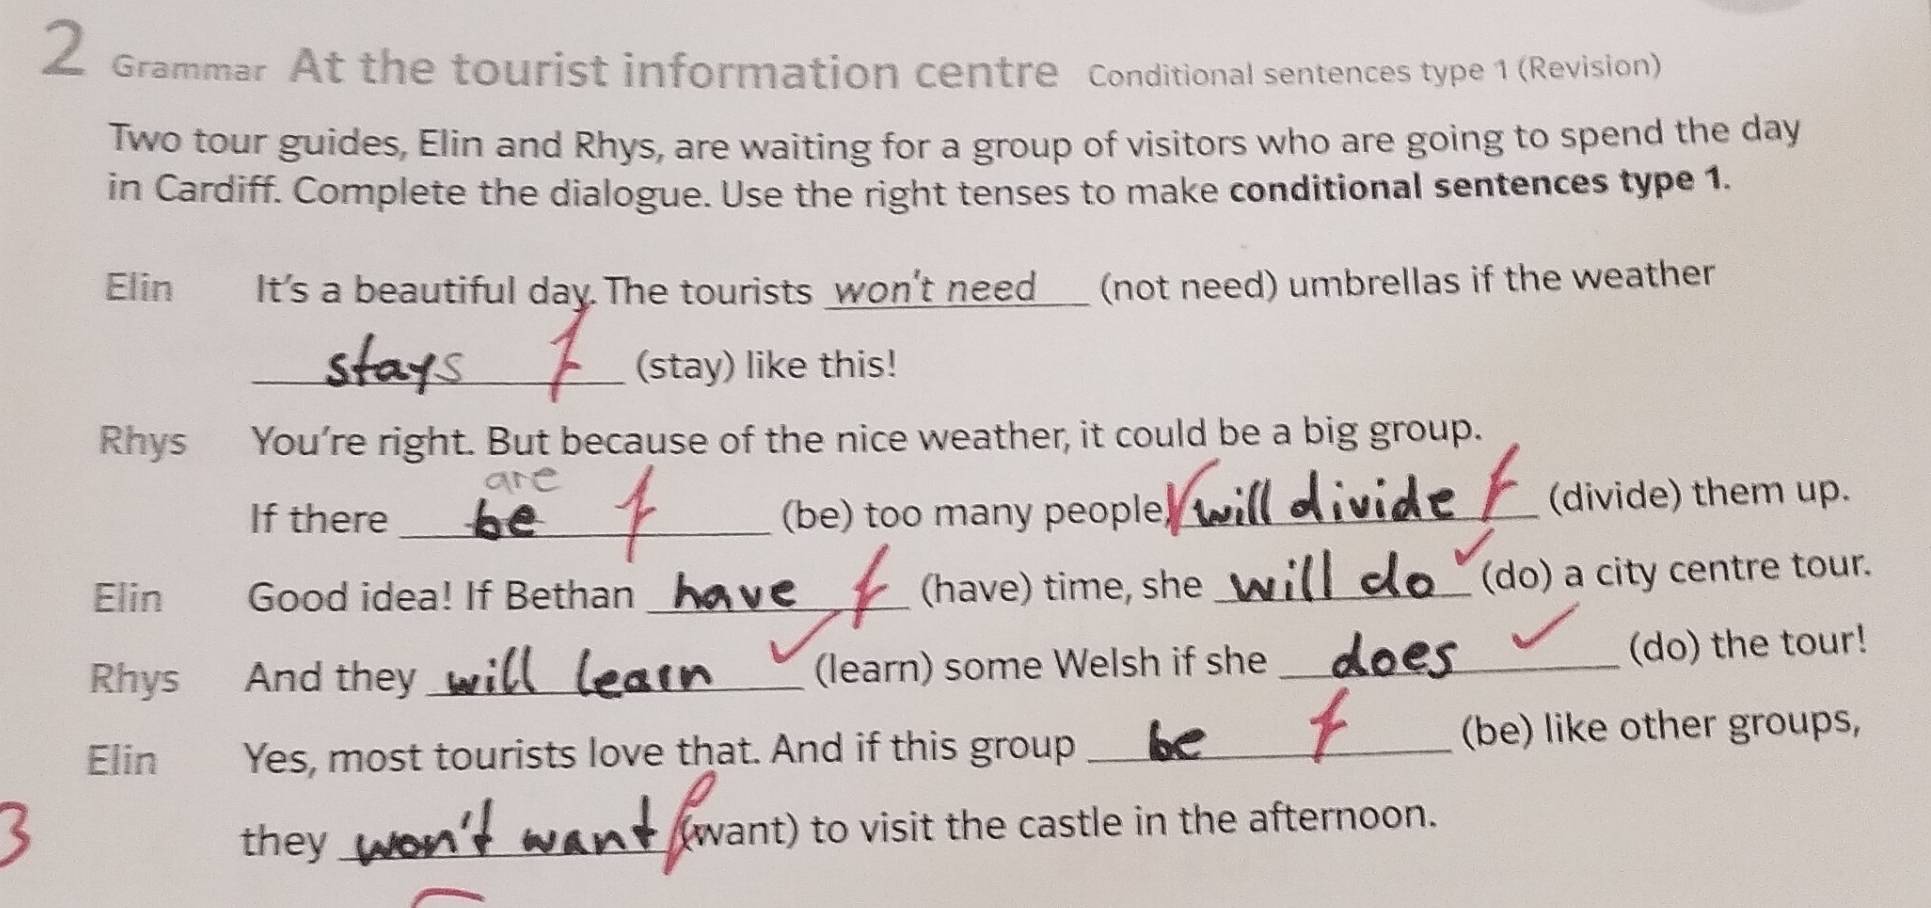 2 Grammar At the tourist information centre Conditional sentences type 1 (Revision)
Two tour guides, Elin and Rhys, are waiting for a group of visitors who are going to spend the day
in Cardiff. Complete the dialogue. Use the right tenses to make conditional sentences type 1.
Elin It's a beautiful day. The tourists won't need (not need) umbrellas if the weather
stays f (stay) like this!
Rhys You're right. But because of the nice weather, it could be a big group.
are
If there be f (be) too many people, will divide f (divide) them up.
Elin Good idea! If Bethan have f (have) time, she will do ✓ (do) a city centre tour.
Rhys And they will learn ✓ (learn) some Welsh if she does ✓ (do) the tour!
Elin Yes, most tourists love that. And if this group be f (be) like other groups,
3 they won't want f (want) to visit the castle in the afternoon.